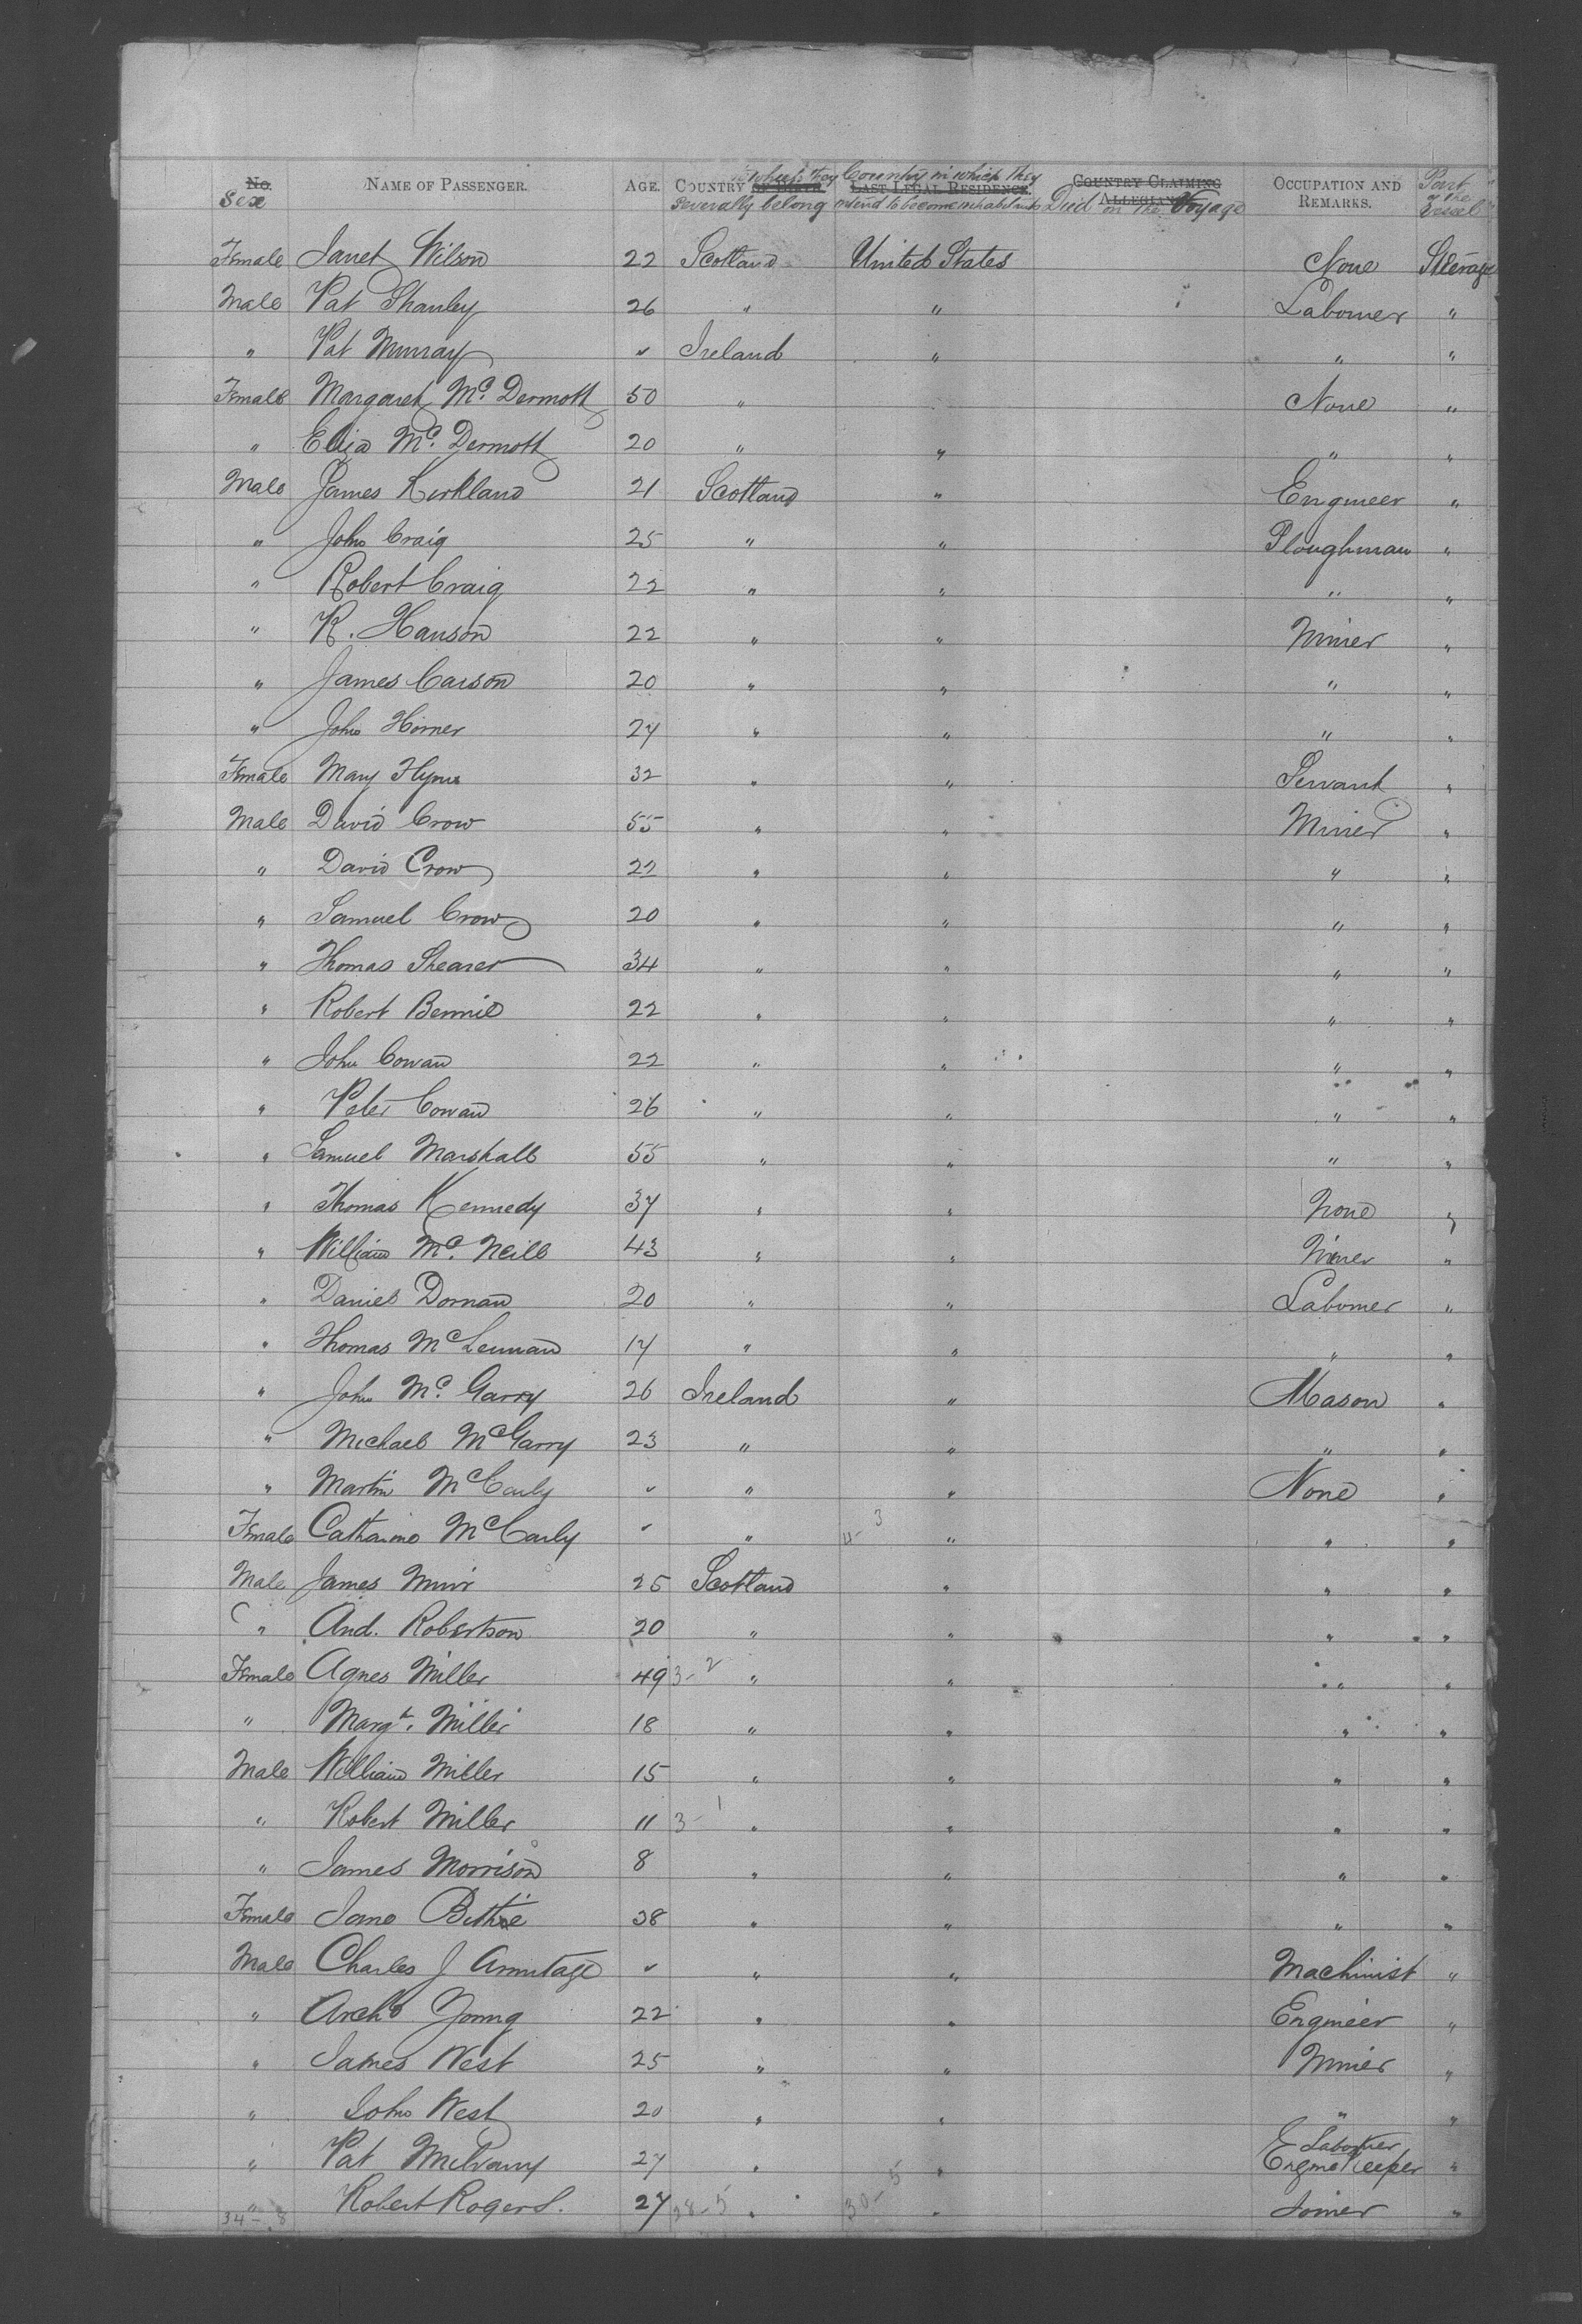 No. Sex NAME OF PASSENGER. AGE. COUNTRY OF BIRTH to which they severally belong LAST LEGAL RESIDENCE. Country in which they intend to become inhabitants COUNTRY CLAIMING ALLEGIANCE Died on the Voyage OCCUPATION AND REMARKS. Part of the vessel
Female Janet Wilson 22 Scotland United States None Steerage
Male Pat Shanley 26 " " Labourer "
" Pat Murray " Ireland " " "
Female Margaret Mc. Dermott 50 " None "
" Eliza Mc. Dermott 20 " " " "
Male James Kirkland 21 Scotland " Engineer "
" John Craig 25 " " Ploughman "
" Robert Craig 22 " " " "
" R. Hanson 22 " " Miner "
" James Carson 20 " " " "
" John Horner 24 " " " "
Female Mary Flynn 32 " " Servant "
Male David Crow 55 " " Miner "
" David Crow 22 " " " "
" Samuel Crow 20 " " " "
" Thomas Shearer 34 " " " "
" Robert Bennie 22 " " " "
" John Cowan 22 " " " "
" Peter Cowan 26 " " " "
" Samuel Marshall 55 " " " "
" Thomas Kennedy 37 " " None "
" William Mc. Neill 43 " " Miner "
" Daniel Dornan 20 " " Labourer "
" Thomas McLennan 17 " " " "
" John Mc. Garry 26 Ireland " Mason "
" Michael McGarry 23 " " " "
" Martin McCarly " " " None "
Female Catharine McCarly " " 4-3 " " "
Male James Muir 25 Scotland " " "
" And. Robertson 20 " " " "
Female Agnes Miller 49 3-2 " " " "
" Margt. Miller 18 " " " "
Male William Miller 15 " " " "
" Robert Miller 11 3-1 " " " "
" James Morrison 8 " " " "
Female Jane Bithie 38 " " " "
Male Charles J Armitage " " " Machinist "
" Archd Young 22 " " Engineer "
" James West 25 " " Miner "
" John West 20 " " " "
" Pat 27 " " Labourer Engine Keeper "
" Robert Rogers. 27 28-5 " 30-5 " Joiner "
34-8